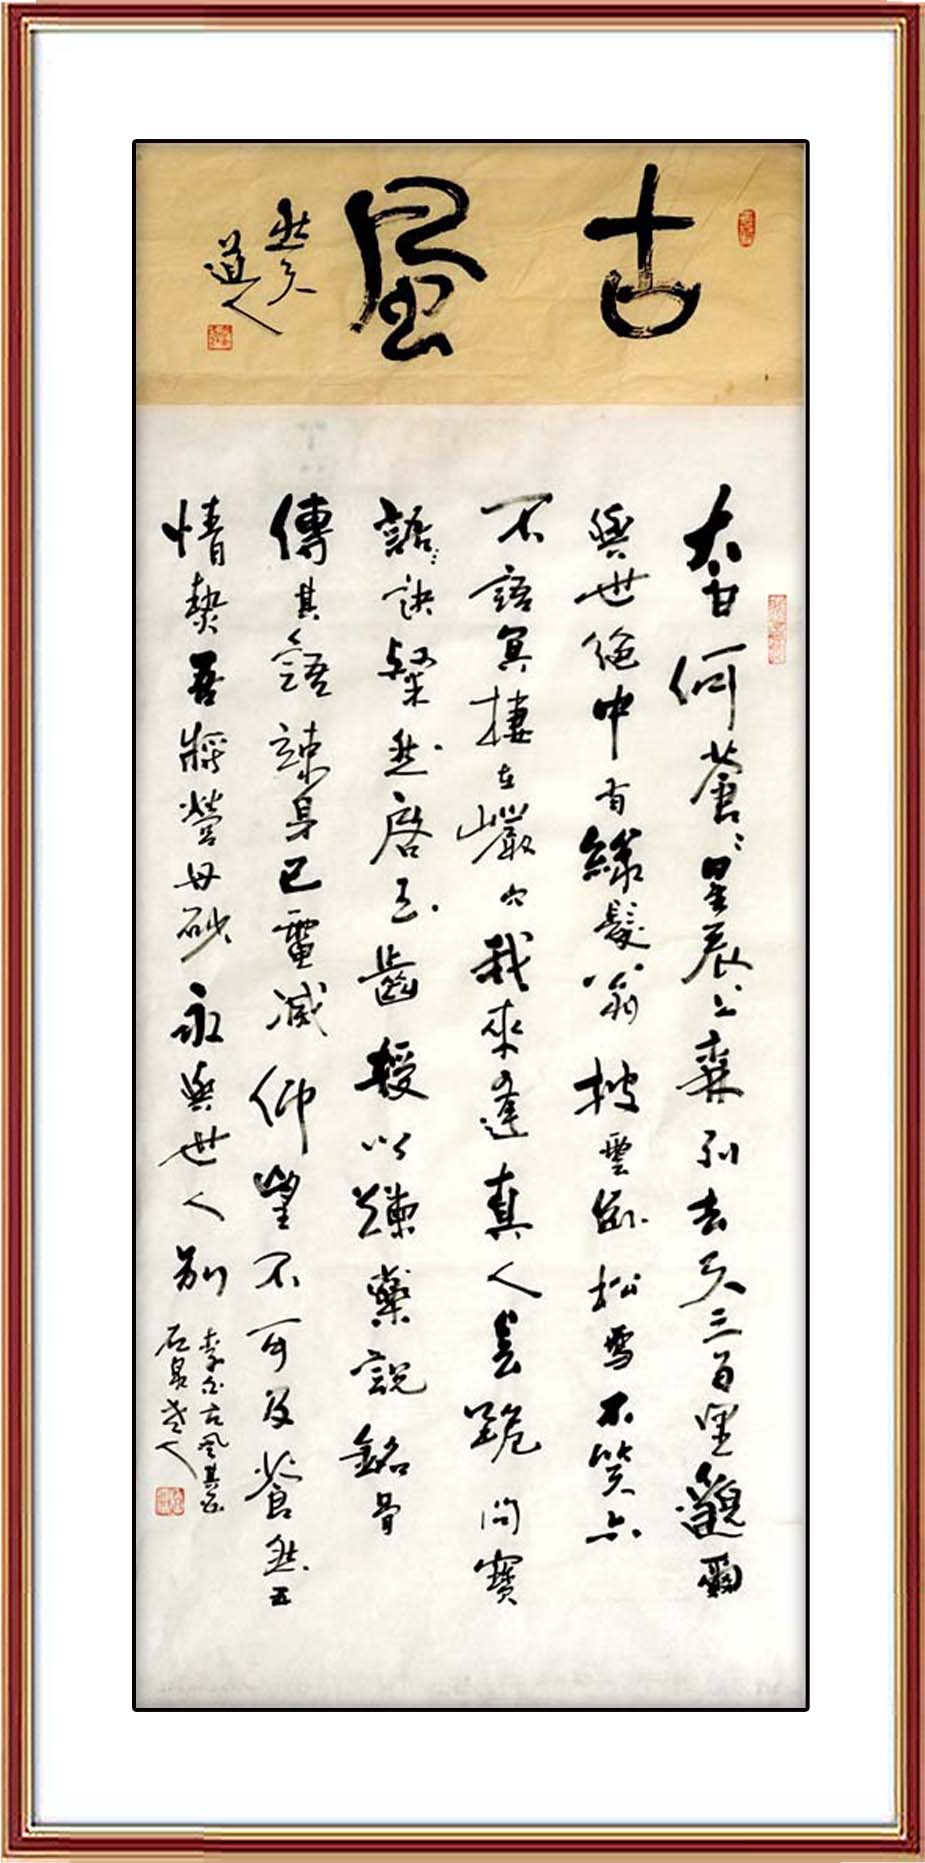 古風
道人
太白何蒼〻星辰上森列去天三百里邈爾
與世絕中有綠髮翁披雲卧松雪不笑亦
不語冥棲在巖穴我來逢真人長跪問寶
訣粲然啓玉齒授以鍊藥說銘骨
傳其語竦身已電滅仰望不可及蒼然五
情熱吾將營丹砂永與世人別
李白古風其五
石泉老人